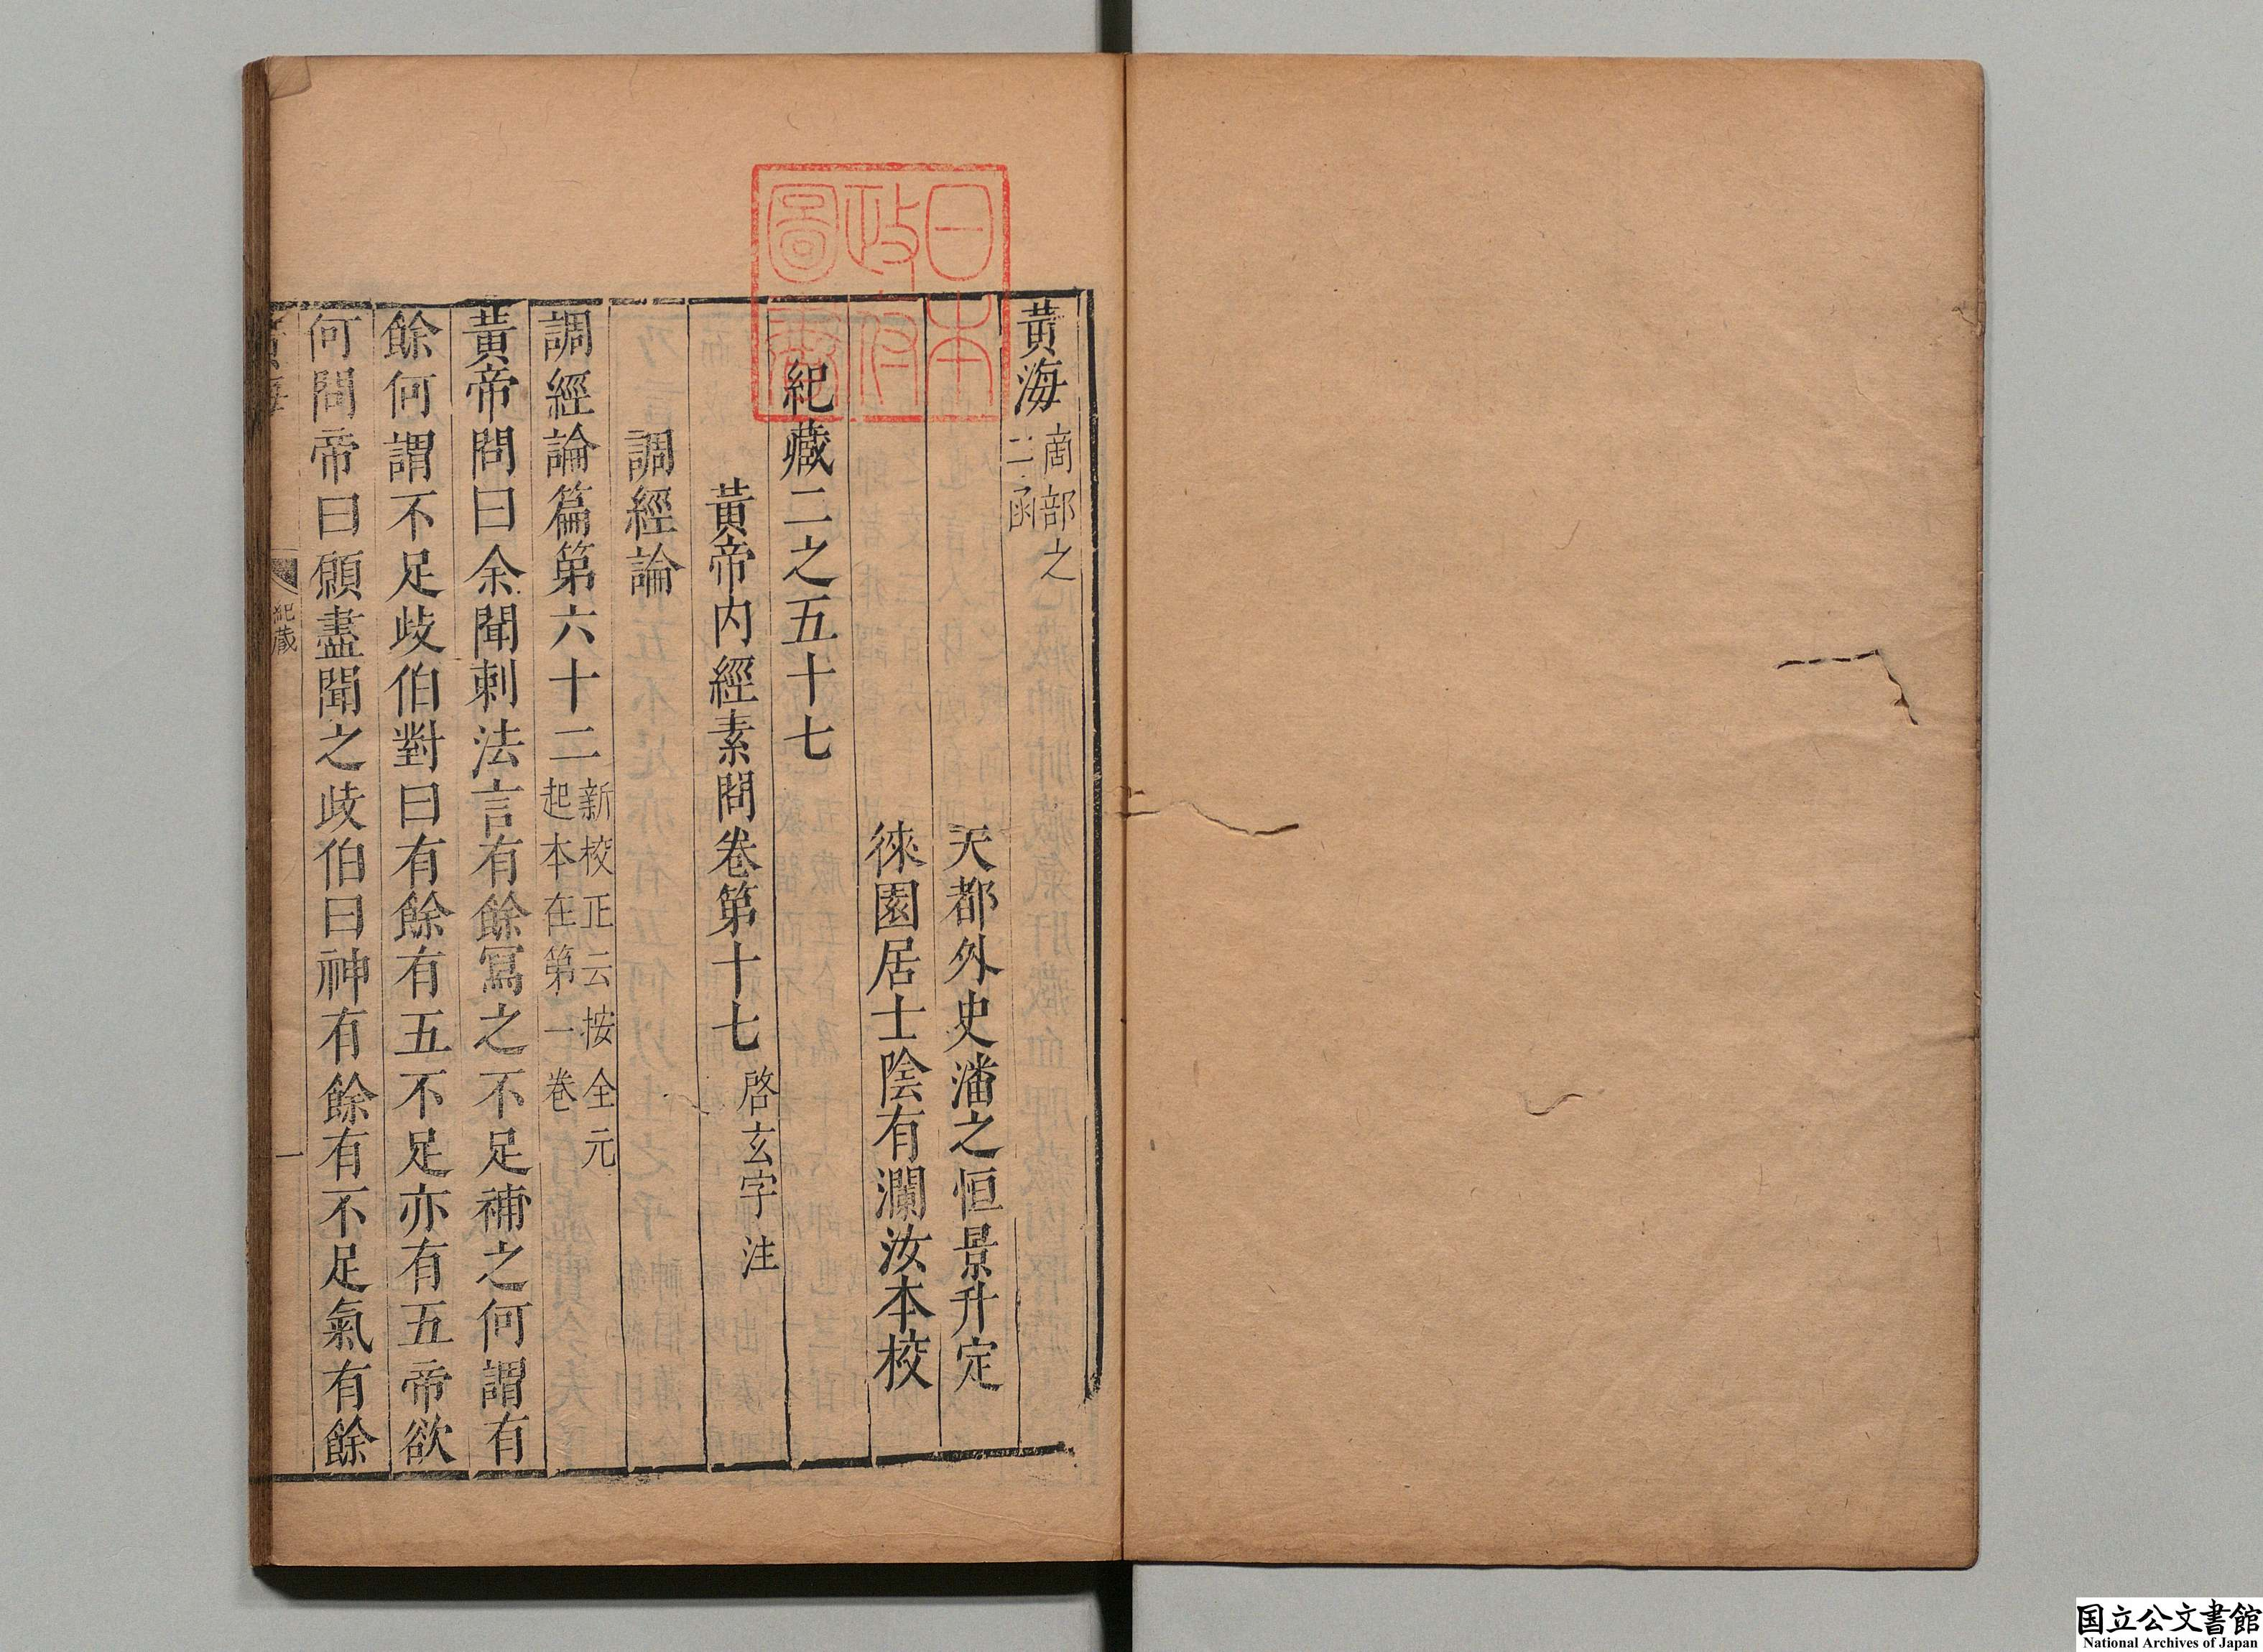 黃海 商部之二函
天都外史潘之恒景升定
徠園居士陰有瀾汝本校
紀藏二之五十七
黃帝內經素問卷第十七 啓玄字注
調經論
調經論篇第六十二 新校正云按全元起本在第一卷
黃帝問曰余聞刺法言有餘寫之不足補之何謂有
餘何謂不足歧伯對曰有餘有五不足亦有五帝欲
何問帝曰願盡聞之歧伯曰神有餘有不足氣有餘
黃海 紀藏 一
日本
政府
圖書
国立公文書館
National Archives of Japan